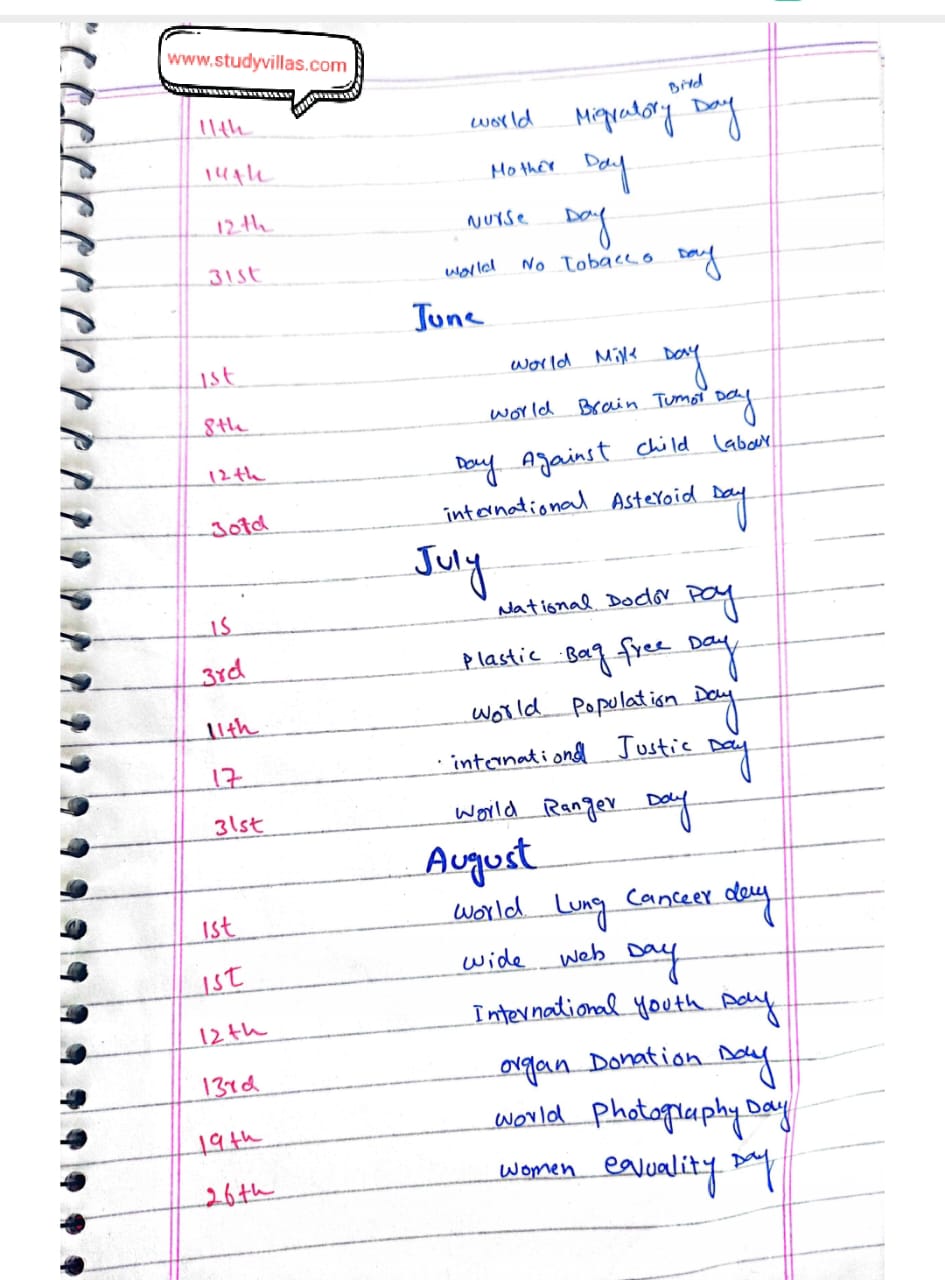 www.studyvillas.com
11th World Migratory Bird Day
14th Mother Day
12th Nurse Day
31st World No Tobacco Day
June
1st World Milk Day
8th World Brain Tumor Day
12th Day Against Child Labour
30td international Asteroid Day
July
1s National Doctor Day
3rd Plastic Bag free Day
11th World Population Day
17 international Justic Day
31st World Ranger Day
August
1st World Lung Canceer day
1st wide web Day
12th International Youth Day
13rd organ Donation Day
19th World Photography Day
26th Women equality Day